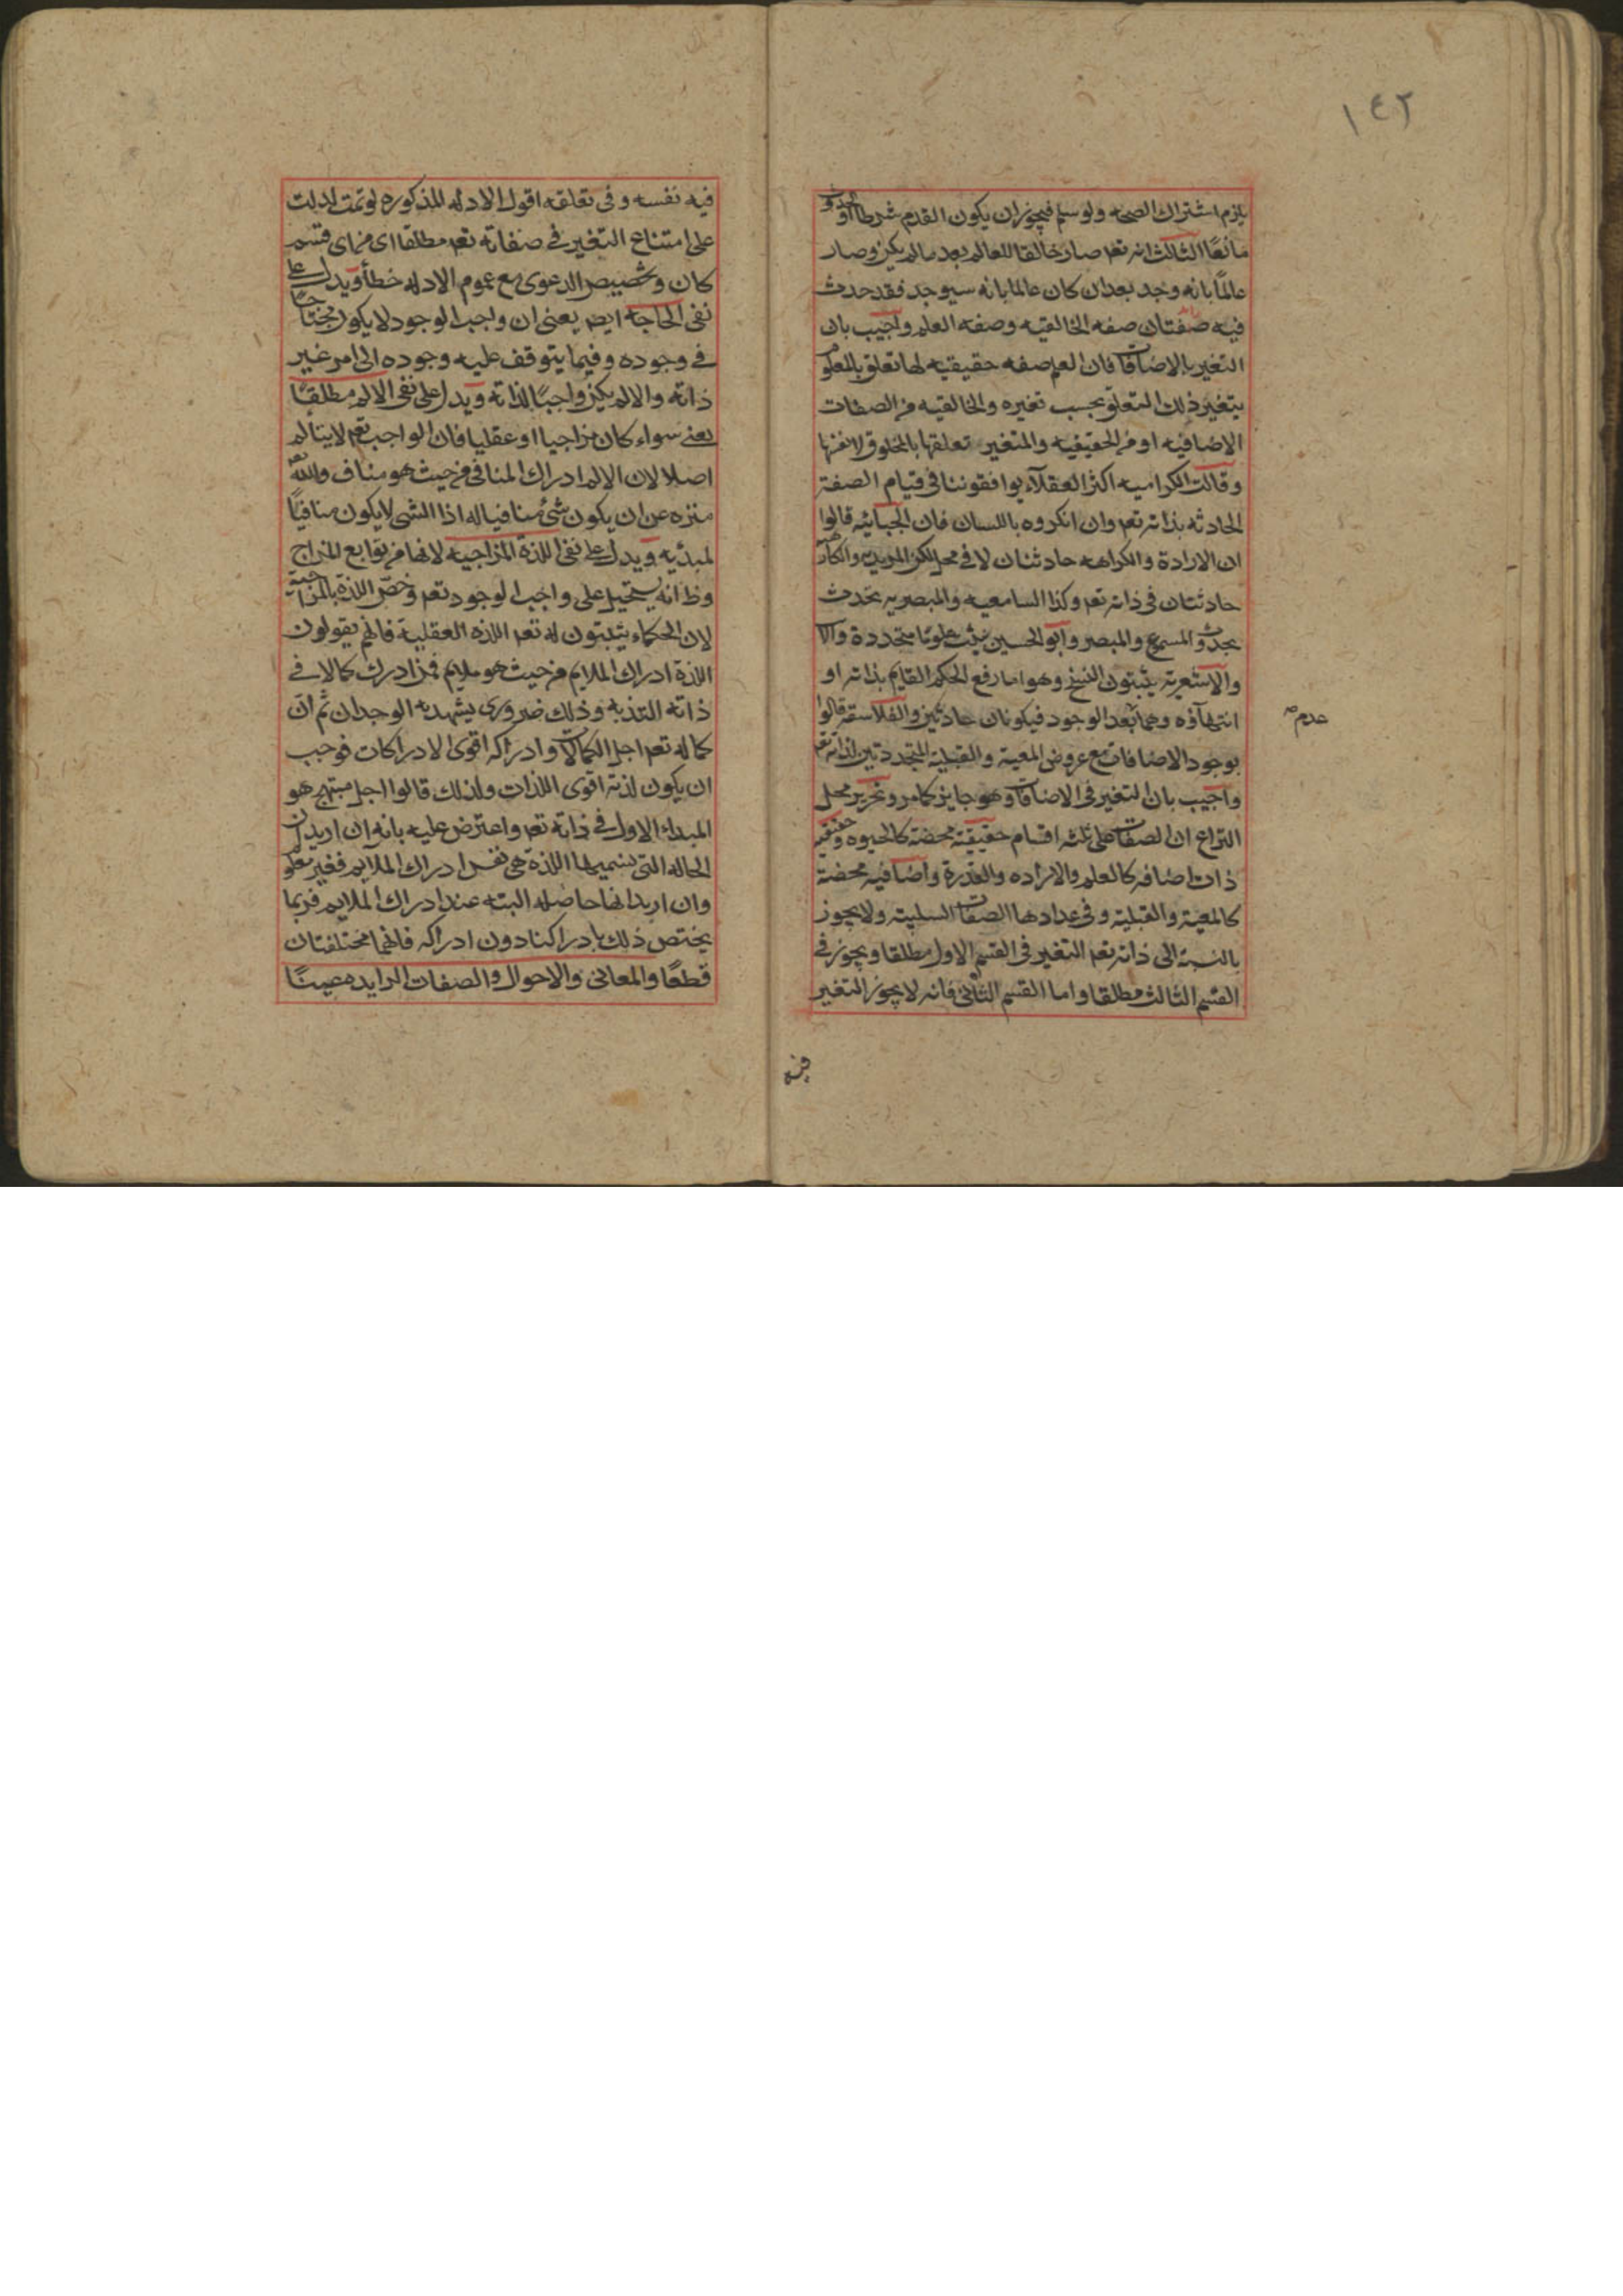 ١٤٢
يلزم اشتراك الصحه ولو سلم فيجوز ان يكون القدم شرطا او الحدوث
مانعًا الثالث انه تعم صار خالقا للعالم بعد ما لم يكن وصار
عالمًا بانه وجد بعد ان كان عالما بانه سيوجد فقد حدث
فيه صفتان صفه الخالقيه وصفه العلم واجيب بان
التغير بالاضافات فان العلم صفه حقيقيه لها تعلق بالمعلوم
يتغير ذلك التعلق بحسب تغيره والخالقيه من الصفات
الاضافيه او من الحقيقيه والمتغير تعلقها بالمخلوق لا نفسها
وقالت الكراميه اكثر العقلاء يوافقوننا في قيام الصفة
الحادثه بذاته تعم وان انكروه باللسان فان الجبائيه قالوا
ان الارادة والكراهه حادثتان لا في محل لكن المريديه والكارهيه
حادثتان في ذاته تعم وكذا السامعيه والمبصريه تحدث
بحدوث المسموع والمبصر وابو الحسين يثبت علومًا متجددة والا
والاشعرية يثبتون النسخ وهو اما رفع الحكم القايم بذاته او
انتهاؤه وهما بعد الوجود فيكونان حادثين والفلاسفه قالوا
عدم صح
بوجود الاضافات مع عروض المعية والقبلية المتجددتين لذاته تعم
واجيب بان التغير في الاضافات وهو جايز كما مر وتحرير محل
النزاع ان الصفات على ثلثه اقسام حقيقية محضة كالحيوه وحقيقيه
ذات اضافه كالعلم والاراده والقدرة واضافيه محضة
كالمعية والقبلية وفي عدادها الصفات السلبية ولا يجوز
بالنسبة الى ذاته تعم التغير في القسم الاول مطلقا ويجوز في
القسم الثالث مطلقا واما القسم الثاني فانه لا يجوز التغير
فيه
فيه نفسه وفي تعلقه اقول الادله المذكوره لو تمت لدلت
على امتناع التغير في صفاته تعم مطلقا اى من اى قسم
كان وتخصيص الدعوى مع عموم الادله خطأ ويدل على
نفى الحاجه ايضا يعنى ان واجب الوجود لا يكون محتاجًا
في وجوده وفيما يتوقف عليه وجوده الى امر غير
ذاته والا لم يكن واجبًا لذاته ويدل على نفى الالم مطلقًا
يعنى سواء كان مزاجيا او عقليا فان الواجب تعم لا يتالم
اصلا لان الالم ادراك المنافى من حيث هو مناف والله تعم
منزه عن ان يكون شئ منافيا له اذا الشى لا يكون منافيًا
لمبدئيه ويدل على نفى اللذة المزاجيه لانها من توابع المزاج
وظ انه يستحيل على واجب الوجود تعم وخصّ اللذة بالمزاجية
لان الحكماء يثبتون له تعم اللذه العقلية فانهم يقولون
اللذة ادراك الملايم من حيث هو ملايم فمن ادرك كمالا في
ذاته التذ به وذلك ضرورى يشهد به الوجدان ثم ان
كماله تعم اجل الكمالات وادراكه اقوى الادراكات فوجب
ان يكون لذته اقوى اللذات ولذلك قالوا اجل مبتهج هو
المبداء الاول في ذاته تعم واعترض عليه بانه ان اريد ان
الحاله التى نسميها اللذة هى نفس ادراك الملايم فغير معلوم
وان اريد انها حاصله البته عند ادراك الملايم فربما
يختص ذلك بادراكنا دون ادراكه فانهما مختلفتان
قطعًا والمعانى والاحوال والصفات الزايده عينًا